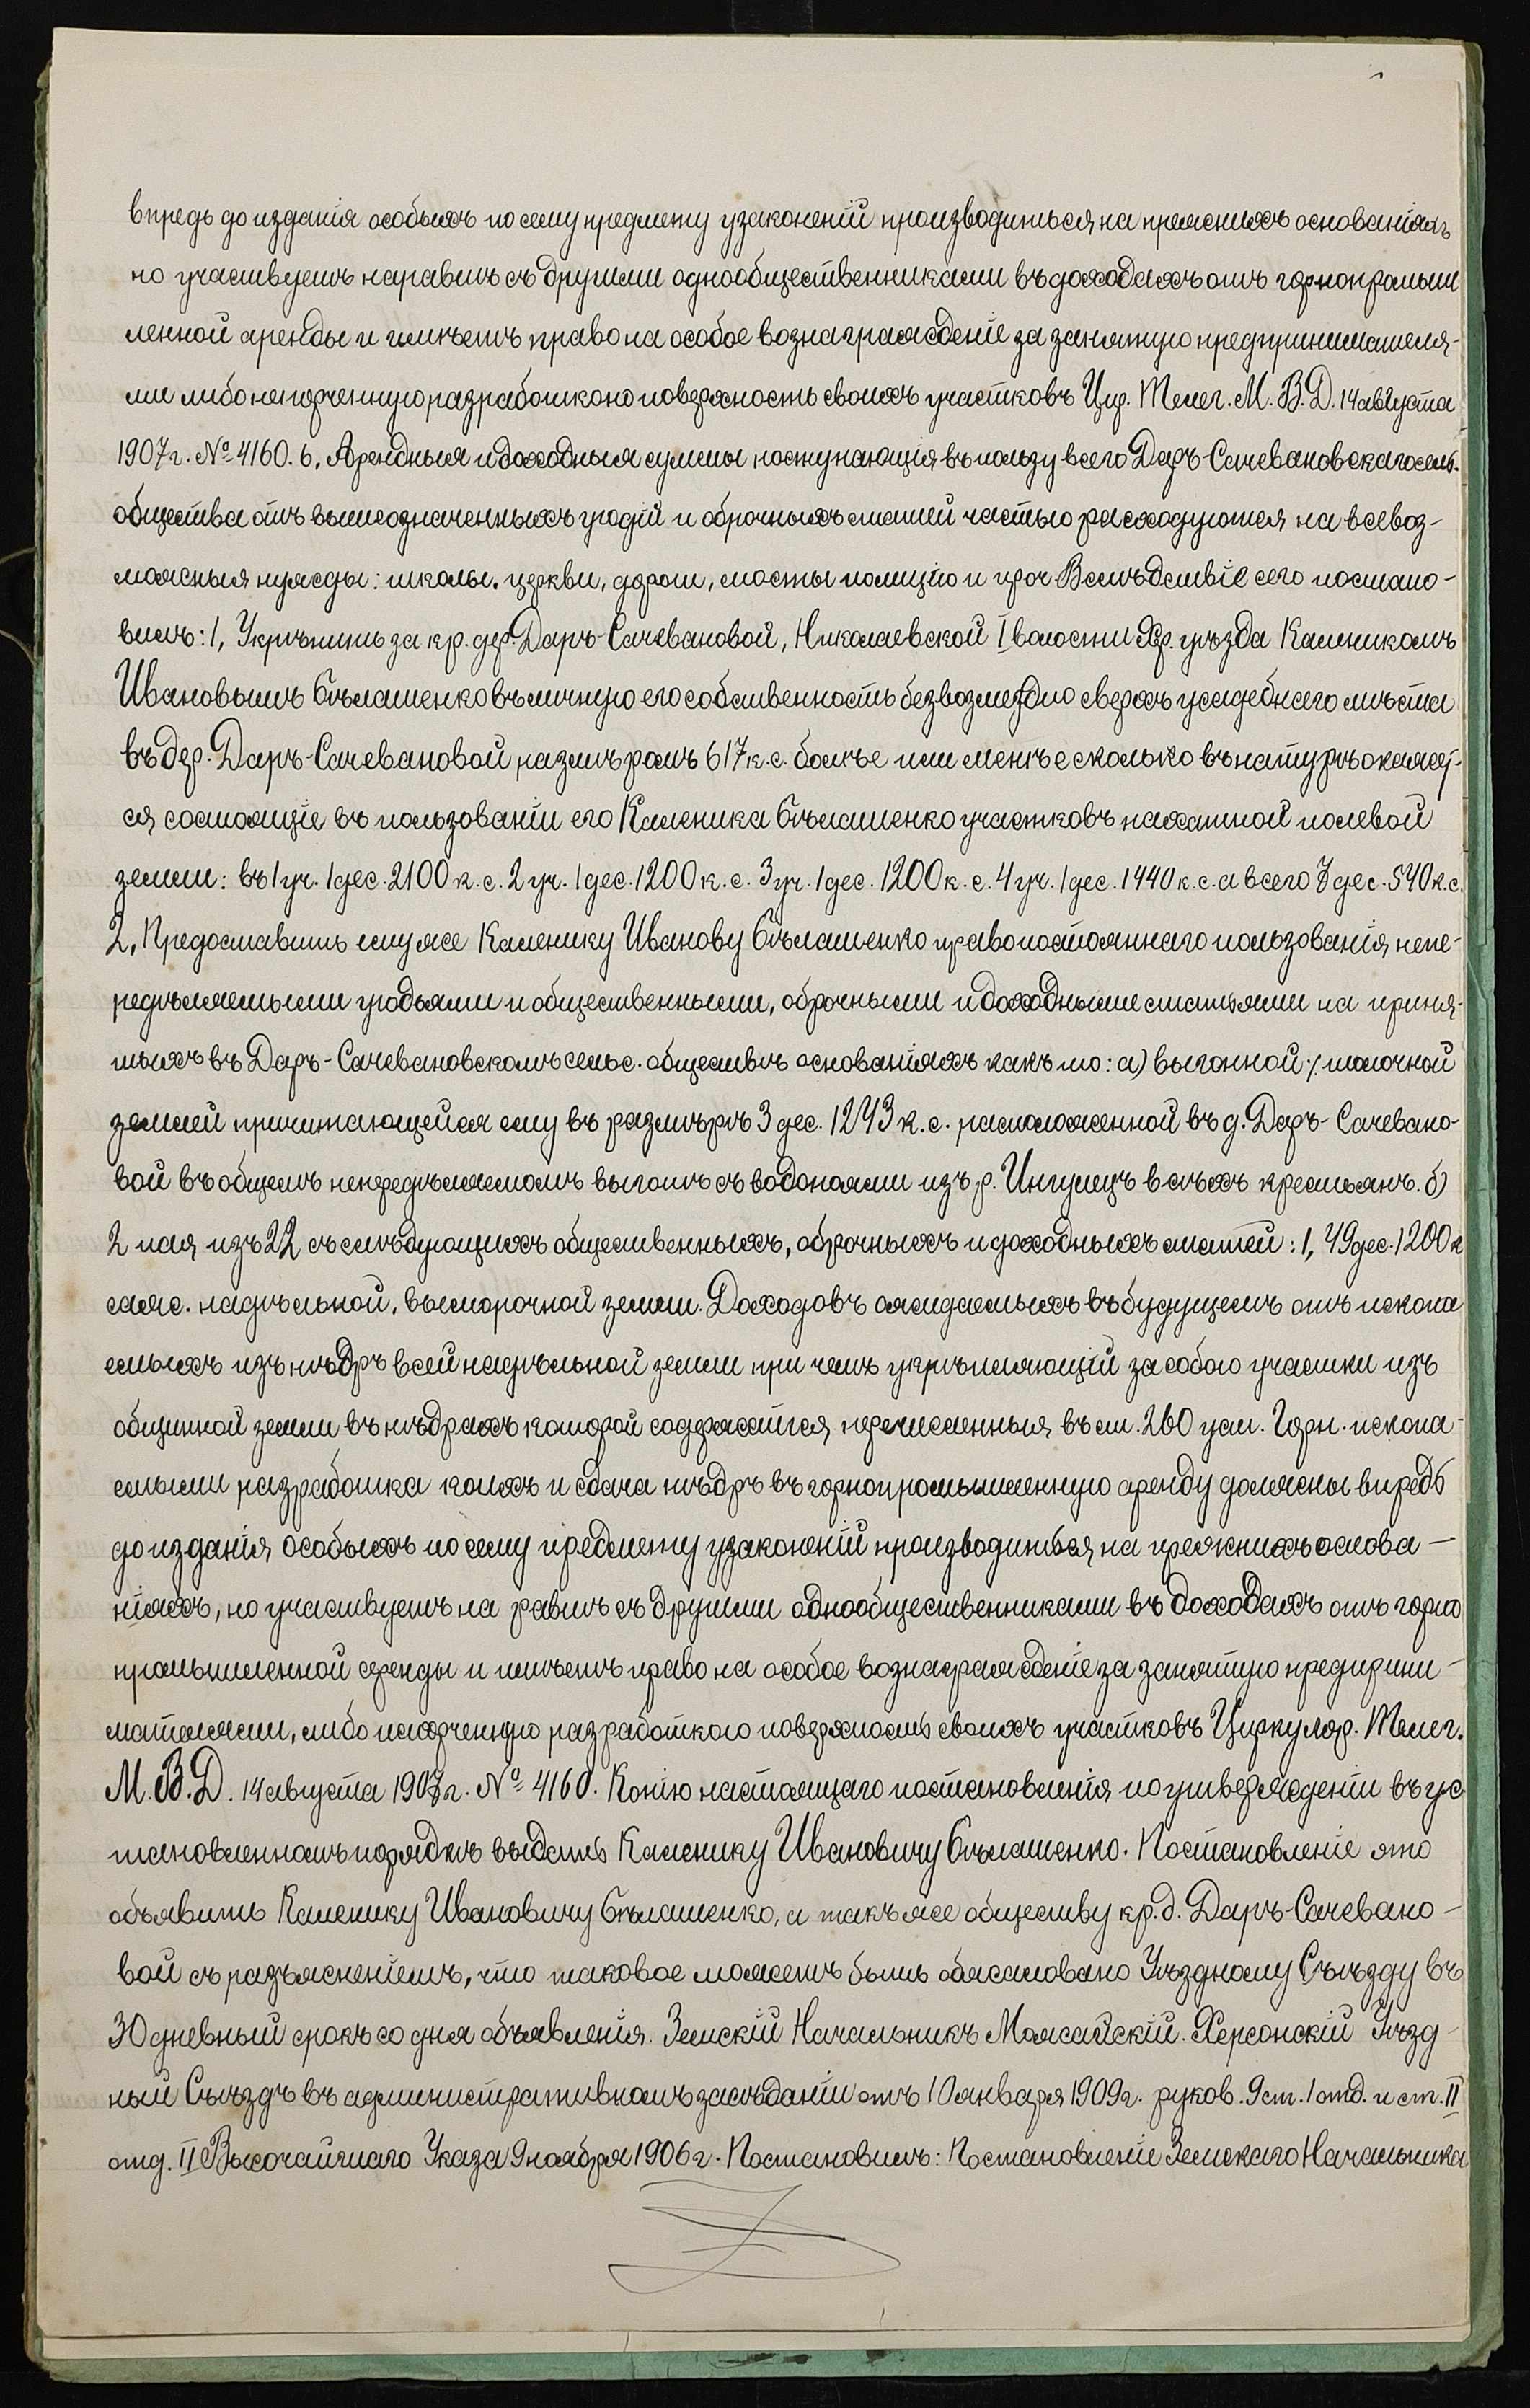 впредь до изданія особыхъ по сему предмету узаконеній производиться на прежнихъ основаніяхъ
но участвуетъ наравнѣ съ другими однообщественниками въ доходахъ отъ горнопромыш
ленной аренды и имѣетъ право на особое вознагражденіе за занятую предпринимателя-
ми либо испорченную разработкою поверхность своихъ участковъ Цир. Телег. М. В. Д. 14 августа
1907 г. № 4160. 6, Арендныя и доходныя суммы поступающія въ пользу всего Даръ-Сачевановскаго сель.
общества отъ вышеозначенныхъ угодій и оброчныхъ статей частью расходуются на всевоз-
можныя нужды: школы, церкви, дороги, мосты полицію и проч Вслѣдствіе сего постано-
вилъ: 1, Укрѣпить за кр. дер. Даръ-Сачевановой, Николаевской I волости Хер. уѣзда Каленикомъ
Ивановымъ Бѣлашенко въ личную его собственность безвозмездно сверхъ усадебнаго мѣста
въ дер. Даръ-Сачевановой размѣромъ 617 к. с. болѣе или менѣе сколько въ натурѣ окажет-
ся состоящіе въ пользованіи его Каленика Бѣлашенко участковъ пахатной полевой
земли: въ 1 уч. 1 дес. 2100 к. с. 2 уч. 1 дес. 1200 к. с. 3 уч. 1 дес. 1200 к. с. 4 уч. 1 дес. 1440 к. с. а всего 7 дес. 540 к. с.
2, Предоставить ему же Каленику Иванову Бѣлашенко право постояннаго пользованія непе-
редѣляемыми угодьями и общественными, оброчными и доходными статьями на приня-
тыхъ въ Даръ-Сачевановскомъ сельс. обществѣ основаніяхъ какъ то: а) выгонной ⁒ толочной
землей причитающейся ему въ размѣрѣ 3 дес. 1243 к. с. расположенной въ д. Даръ-Сачевано-
вой въ общемъ непередѣляемомъ выгонѣ съ водопоями изъ р. Ингулецъ всѣхъ крестьянъ. б)
2 пая изъ 22 съ слѣдующихъ общественныхъ, оброчныхъ и доходныхъ статей: 1, 49 дес. 1200 к
саж. надѣльной, выморочной земли. Доходовъ ожидаемыхъ въ будущемъ отъ ископа
емыхъ изъ нѣдръ всей надѣльной земли при чемъ укрѣпляющій за собою участки изъ
общинной земли въ нѣдрахъ которой содержатся перечисленныя въ ст. 260 уст. Горн. ископа-
емыми разработка коихъ и сдача нѣдръ въ горнопромышленную аренду должны впредь
до изданія особыхъ по сему предмету узаконеній производиться на прежнихъ основа-
ніяхъ, но участвуетъ на равнѣ съ другими однообщественниками въ доходахъ отъ горно
промышленной аренды и имѣетъ право на особое вознагражденіе за занятую предприни-
мателями, либо испорченную разработкою поверхность своихъ участковъ Циркуляр. Телег.
М. В. Д. 14 августа 1907 г. № 4160. Копію настоящаго постановленія по утвержденіи въ ус
тановленномъ порядкѣ выдать Каленику Ивановичу Бѣлашенко. Постановленіе это
объявить Каленику Ивановичу Бѣлашенко, а такъ же обществу кр. д. Даръ-Сачевано-
вой съ разъясненіемъ, что таковое можетъ быть обжаловано Уѣздному Съѣзду въ
30 дневный срокъ со дня объявленія. Земскій Начальникъ Можайскій. Херсонскій Уѣзд-
ный Съѣздъ въ административномъ засѣданіи отъ 10 января 1909 г. руков. 9 ст. 1 отд. и ст. II
отд. II Высочайшаго Указа 9 ноября 1906 г. Постановилъ: Постановленіе Земскаго Начальника